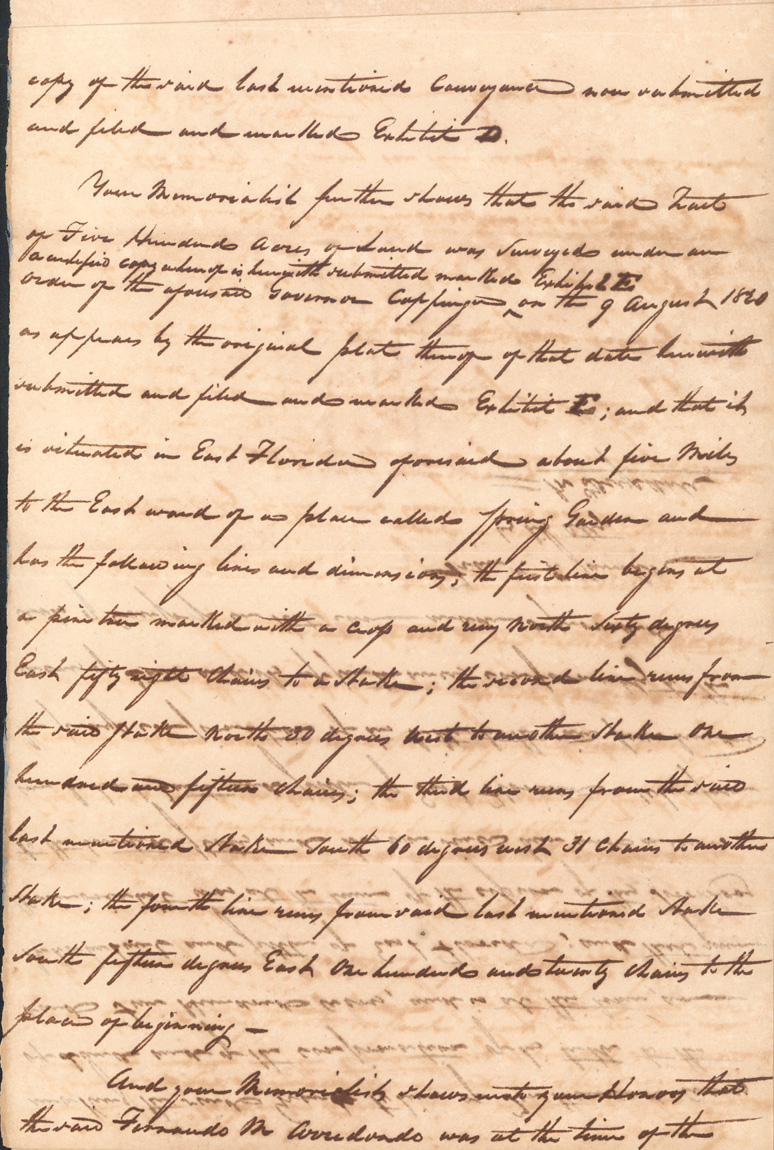 copy of the said last mentioned Conveyance now submitted
and filed and marked Exhibit D.
Your Memorialist further shows that the said Tract
of Five Hundred Acres of Land was Surveyed under an
a certified copy whereof is herewith submitted marked Exhibit E
order of the aforesaid Governor Coppinger ^ on the 9 August 1820
as appears by the original plat thereof of that date herewith
submitted and filed and marked Exhibit ; and that it
is situated in East Florida aforesaid about five Miles
to the East ward of a place called Spring Garden and
has the following lines and dimensions; the first line begins at
a pine tree marked with a cross and runs North Sixty degrees
East fifty eight Chains to a Stake; the second line runs from
the said Stake North 30 degrees West to another Stake One
hundred and fifteen Chains; the third line runs from the said
last mentioned Stake South 60 degrees west 31 Chains to another
Stake; the fourth line runs from said last mentioned Stake
South fifteen degrees East One hundred and twenty Chains to the
place of beginning —
And your Memorialist shows unto your Honors that
the said Fernando M Arredondo was at the time of the